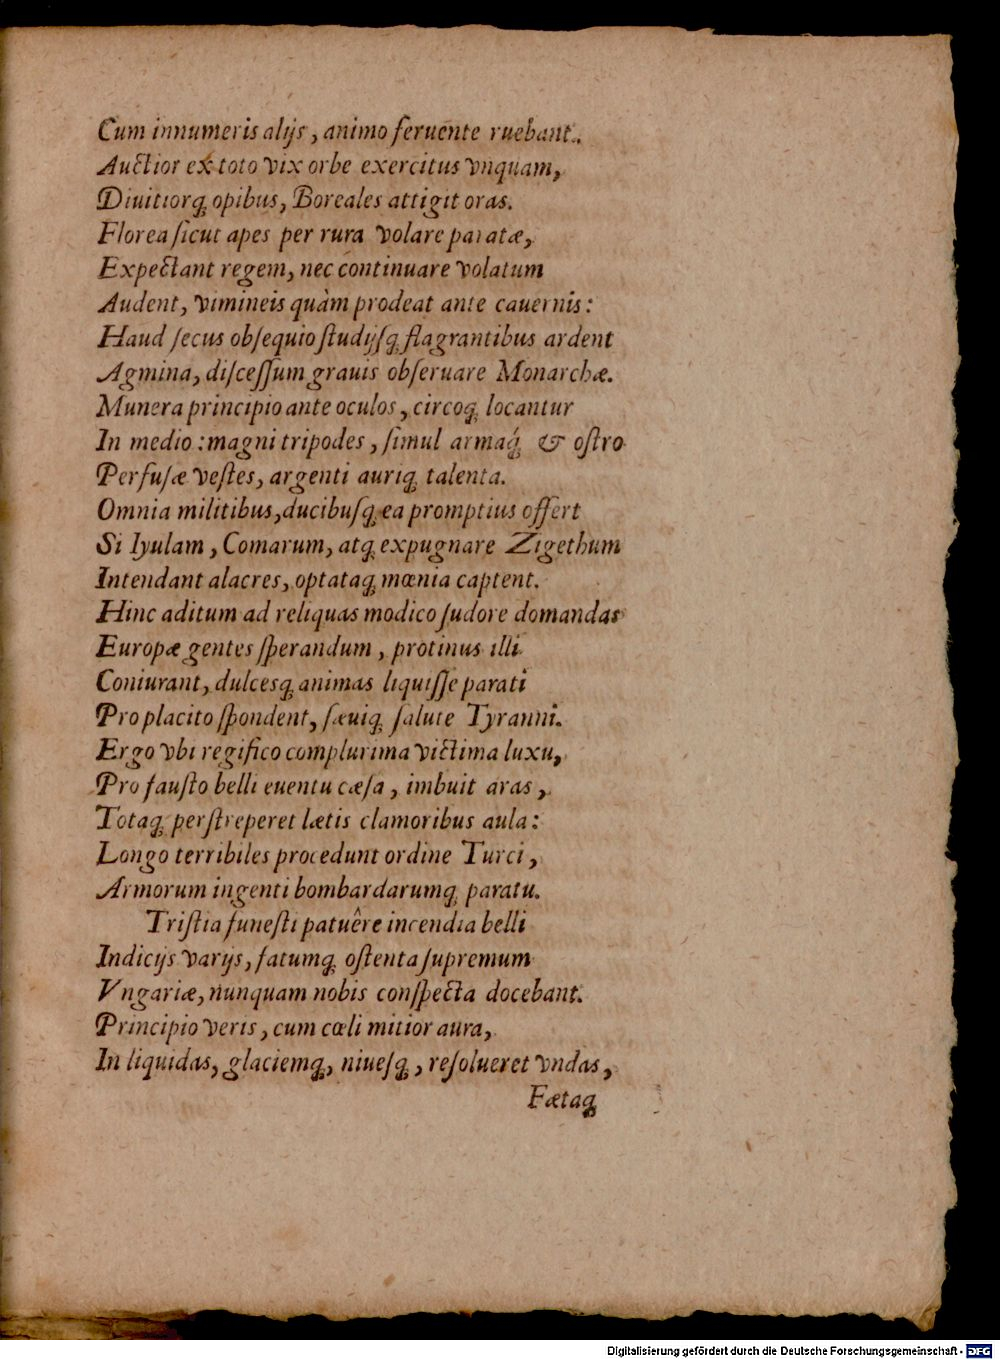 Cum innumeris alijs, animo feruente ruebant.
Auctior ex toto vix orbe exercitus vnquam,
Diuitiorq; opibus, Boreales attigit oras.
Florea ſicut apes per rura volare paratæ,
Expectant regem, nec continuare volatum
Audent, vimineis quàm prodeat ante cauernis:
Haud ſecus obſequio ſtudijſq; flagrantibus ardent
Agmina, diſceſſum grauis obſeruare Monarchæ.
Munera principio ante oculos, circoq; locantur
In medio: magni tripodes, ſimul armaq́; & oſtro
Perfuſæ veſtes, argenti auriq; talenta.
Omnia militibus, ducibuſq; ea promptius offert
Si Iyulam, Comarum, atq; expugnare Zigethum
Intendant alacres, optataq; mœnia captent.
Hinc aditum ad reliquas modico ſudore domandas
Europæ gentes ſperandum, protinus illi
Coniurant, dulcesq; animas liquiſſe parati
Pro placito ſpondent, ſæuiq; ſalute Tyranni.
Ergo vbi regifico complurima victima luxu,
Pro fauſto belli euentu cæſa, imbuit aras,
Totaq; perſtreperet lætis clamoribus aula:
Longo terribiles procedunt ordine Turci,
Armorum ingenti bombardarumq; paratu.
Triſtia funeſti patuêre incendia belli
Indicijs varijs, fatumq; oſtenta ſupremum
Vngariæ, nunquam nobis conſpecta docebant.
Principio veris, cum cœli mitior aura,
In liquidas, glaciemq;, niueſq;, reſolueret vndas,
Fætaq;
Digitalisierung gefördert durch die Deutsche Forschungsgemeinschaft - DFG